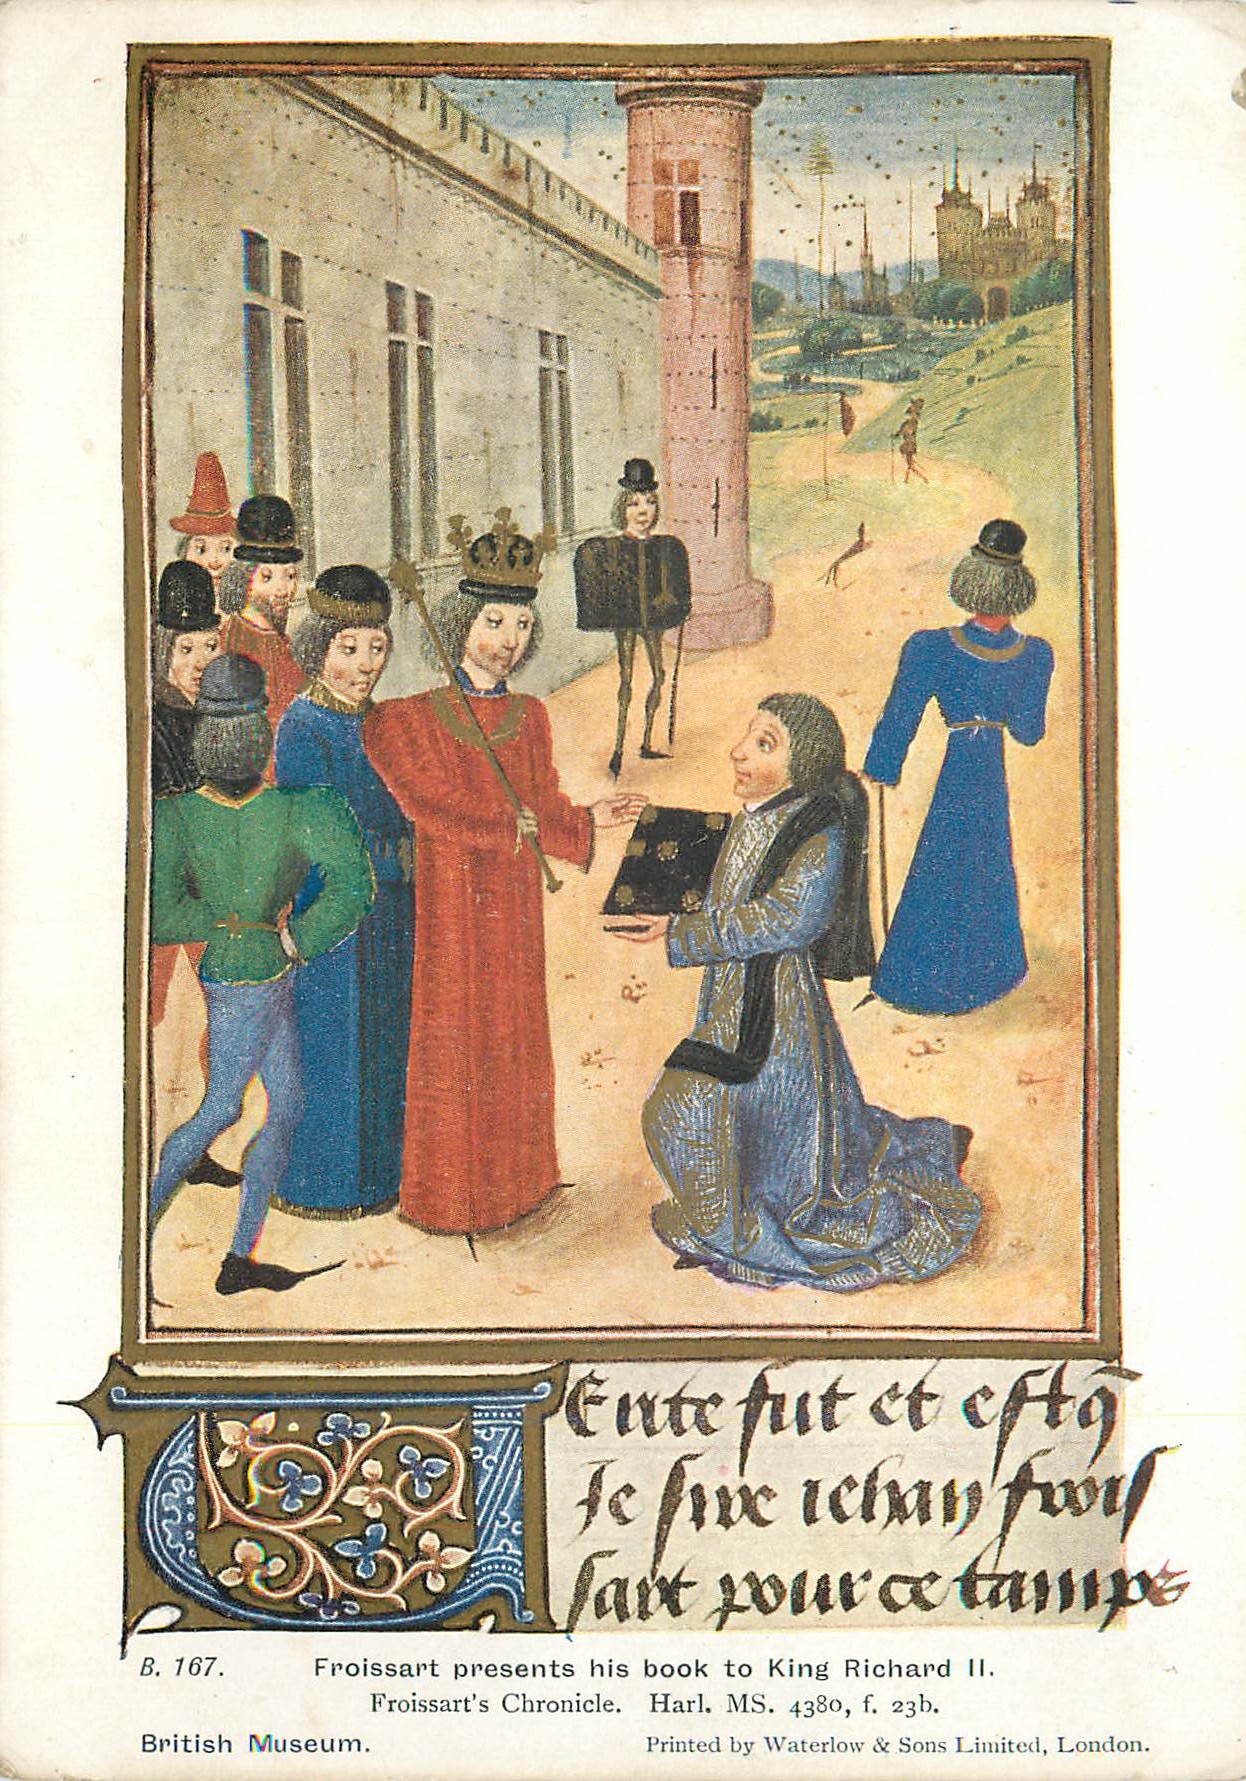 Uerite fut et est q̄
Je sire iehan frois
sart pour ce tamps
B. 167. Froissart presents his book to King Richard II.
Froissart's Chronicle. Harl. MS. 4380, f. 23b.
British Museum. Printed by Waterlow & Sons Limited, London.